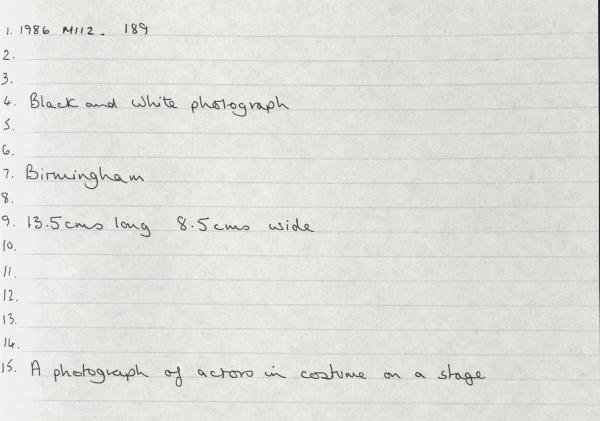 1. 1986 M112. 189
2.
3.
4. Black and White photograph
5.
6.
7. Birmingham
8.
9. 13.5cms long 8.5cms wide
10.
11.
12.
13.
14.
15. A photograph of actors in costume on a stage